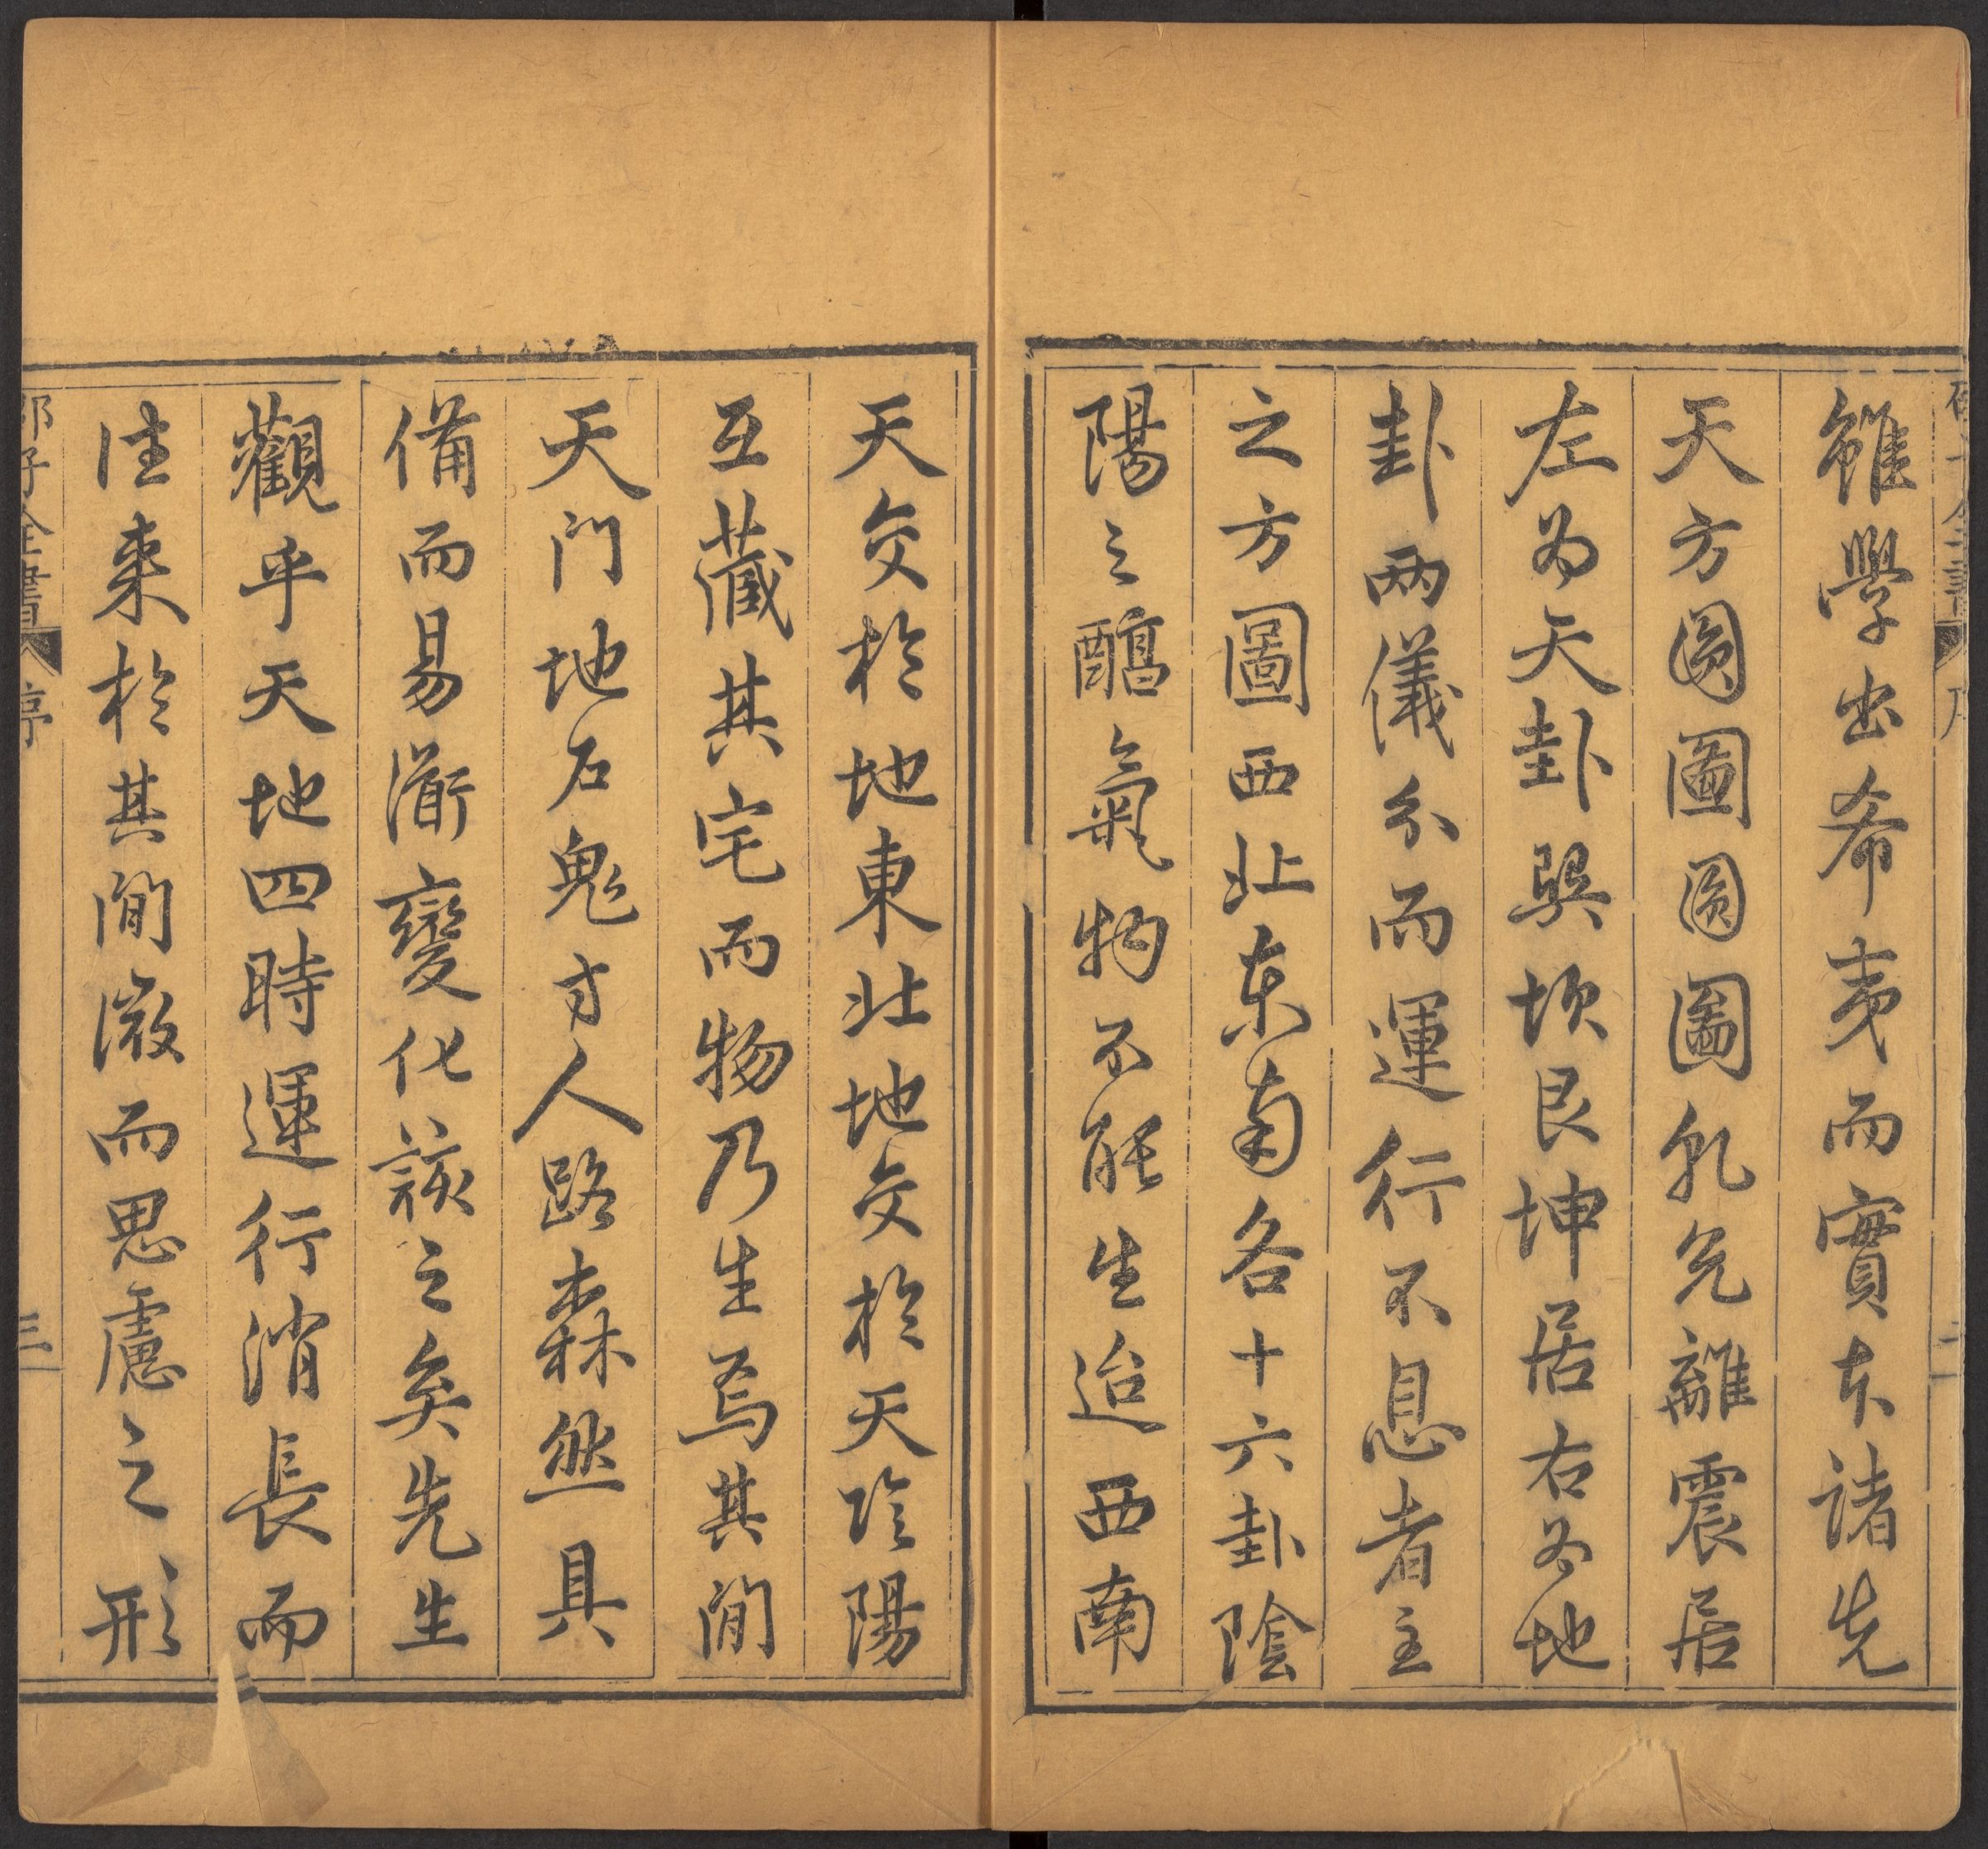 邵子全書 序 二
雖學出希夷而實本諸先
天方圓圖圓圖乾兌離震居
左為天卦巽坎艮坤居右為地
卦兩儀分而運行不息者主
之方圖西北東南各十六卦陰
陽之醕氣物不能生迨西南
天交於地東北地交於天陰陽
互藏其宅而物乃生焉其間
天門地石鬼方人路森然具
備而易衜變化該之矣先生
觀乎天地四時運行消長而
往來於其間微而思慮之形
邵子全書 序 三